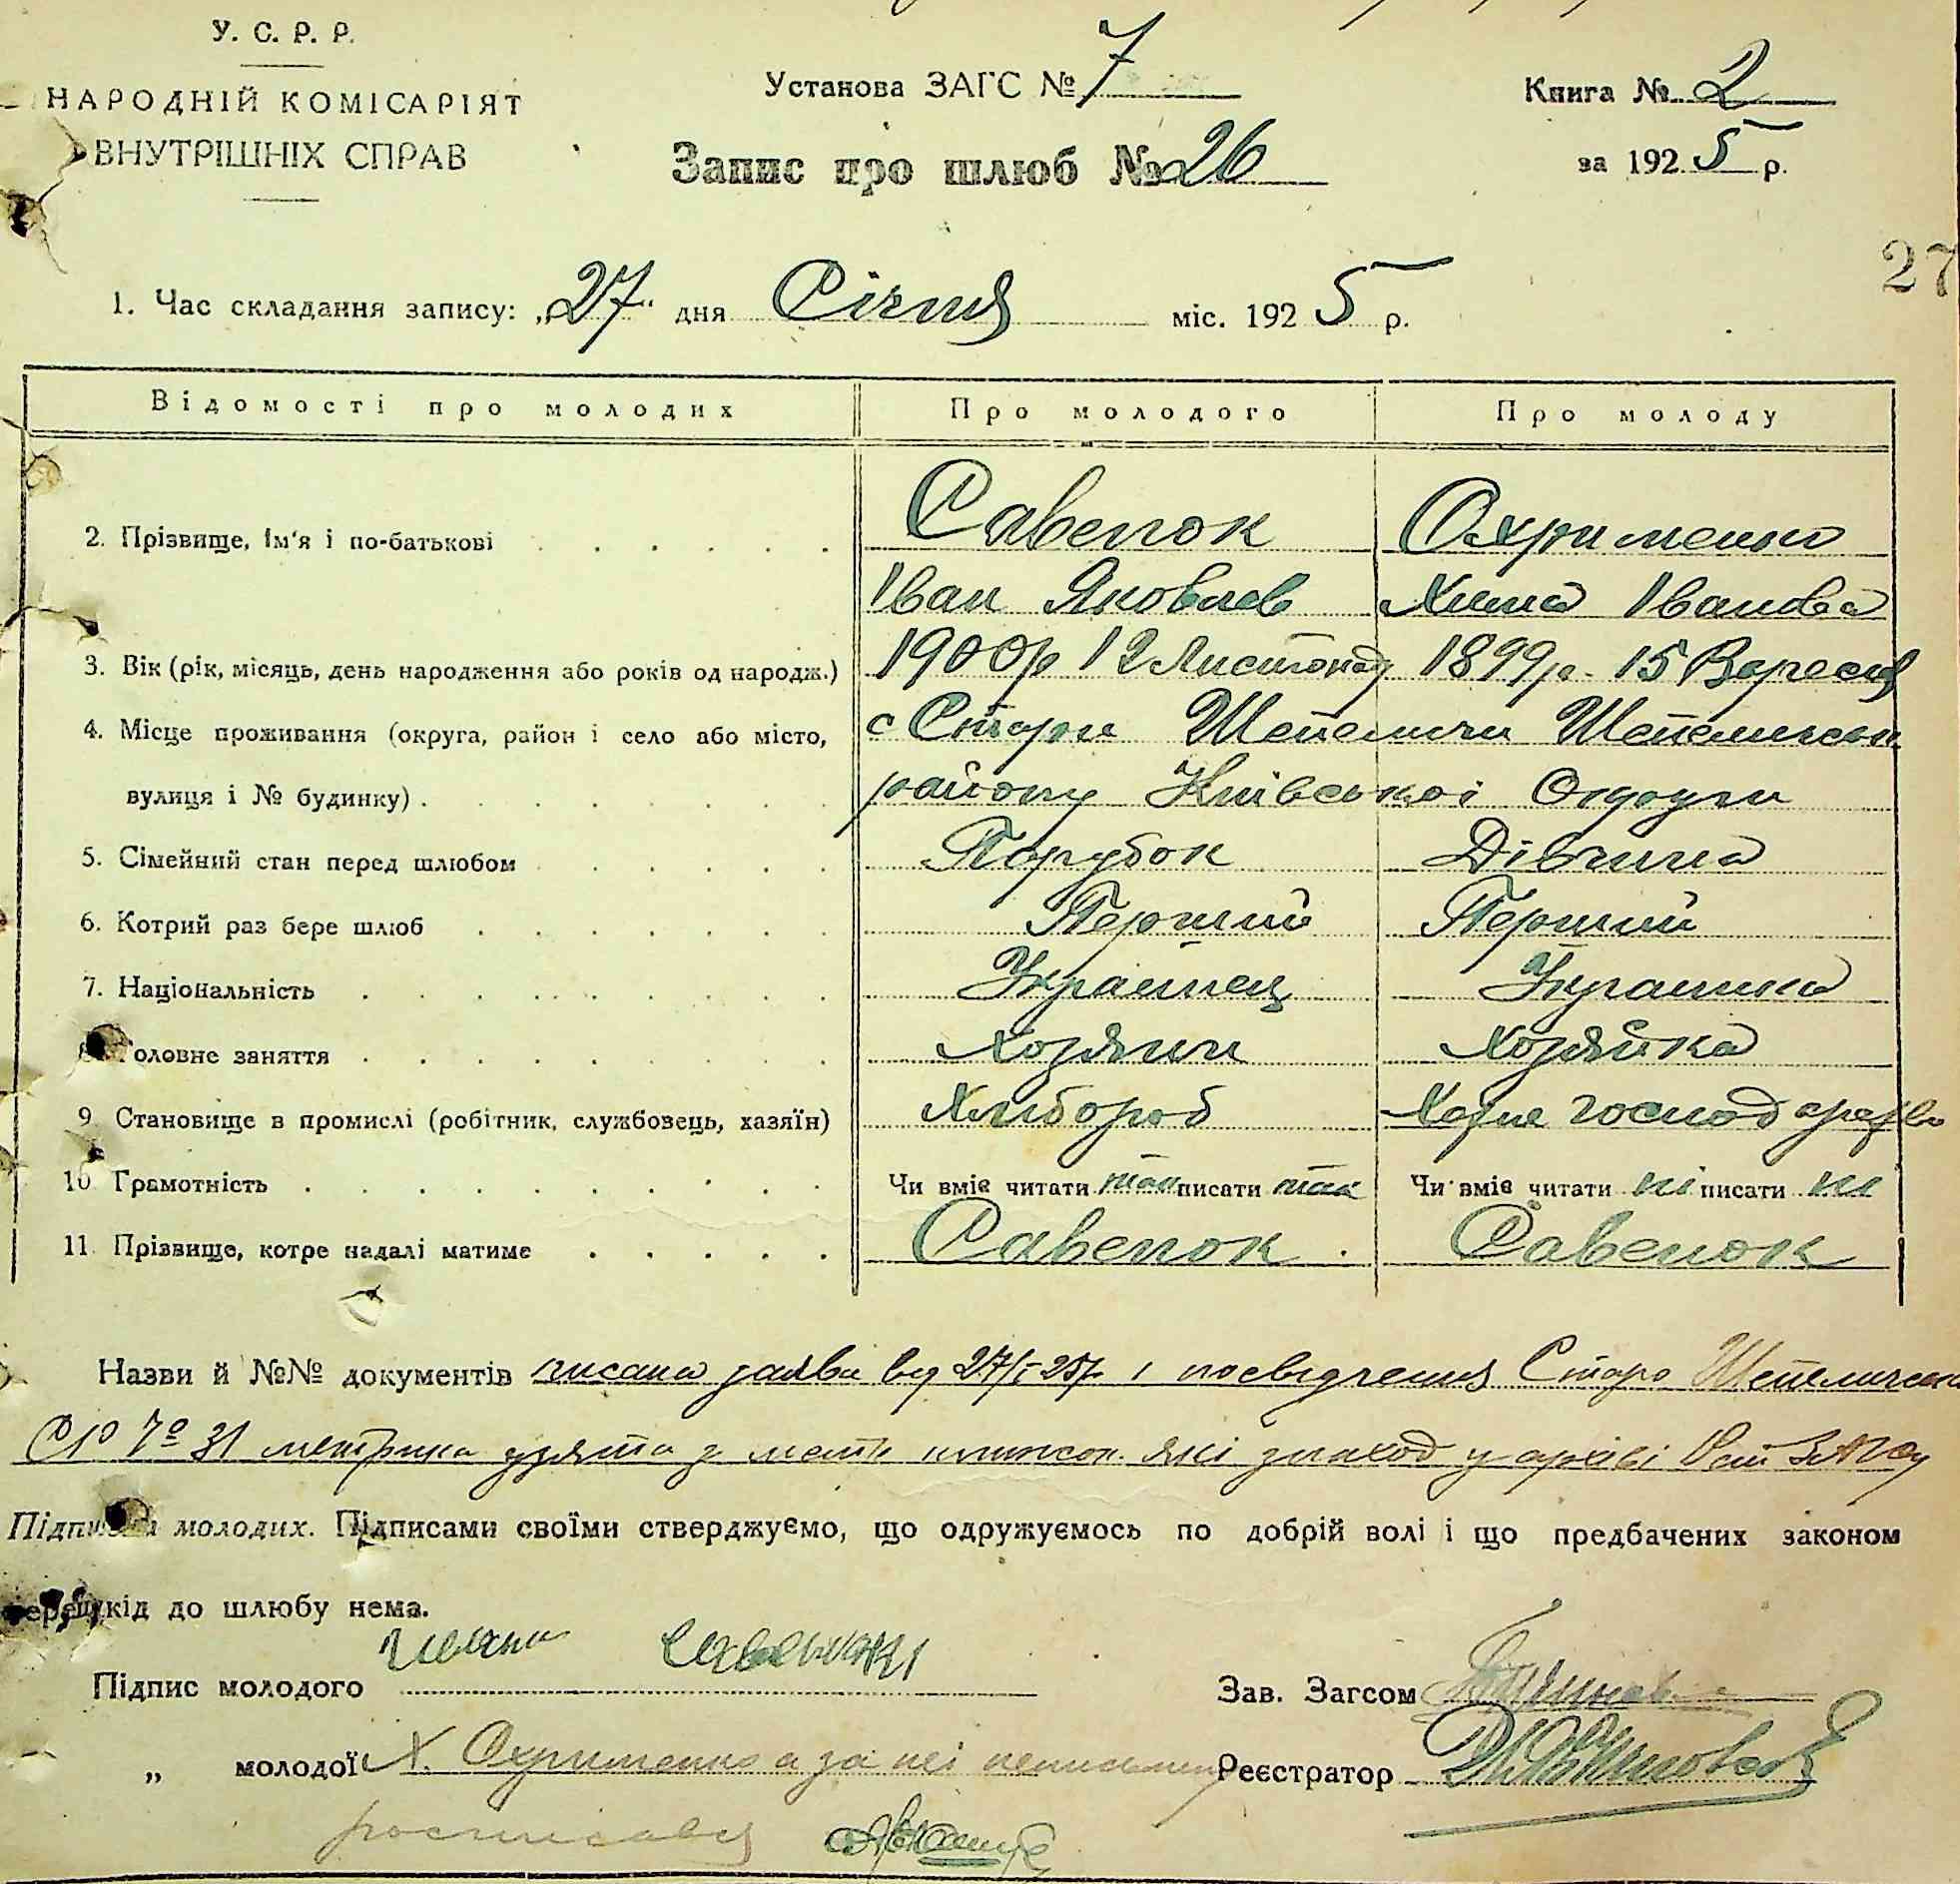 У. С. Р. Р.
НАРОДНІЙ КОМІСАРІЯТ
ВНУТРІШНІХ СПРАВ
Установа ЗАГС № 7
Запис про шлюб № 26
Книга № 2
за 1925 р.
27
1. Час складання запису: „27" дня Січня міс. 1925 р.
Відомості про молодих Про молодого Про молоду
2. Прізвище, ім'я і по-батькові Савенок Охрименко
Іван Яковлев Химка Іванова
3. Вік (рік, місяць, день народження або років од народж.) 1900р 12 Листопад 1899р. 15 Вересня
4. Місце проживання (округа, район і село або місто, с Стари Шепеличи Шепелицьк.
вулиця і № будинку) району Київської Округи
5. Сімейний стан перед шлюбом Парубок Дівчина
6. Котрий раз бере шлюб Перший Перший
7. Національність Украйнец Украинка
8. Головне заняття Хозяин Хозяйка
9. Становище в промислі (робітник, службовець, хазяїн) Хлибороб Хатне господарство
10. Грамотність Чи вміє читати так писати так Чи вміє читати ні писати ні
11. Прізвище, котре надалі матиме Савенок Савенок
Назви й №№ документів писана заява від 27/I-25р. і посвідчення Старо Шепелицьк
СР № 31 метрика узята з метр книжок які знаход у архіві ЗАГСу
Підписи молодих. Підписами своїми стверджуємо, що одружуємось по добрій волі і що предбачених законом
перешкід до шлюбу нема.
Підпис молодого
Зав. Загсом
„ молодої Х. Охрименко а за неі неписьмену
Реєстратор
росписався